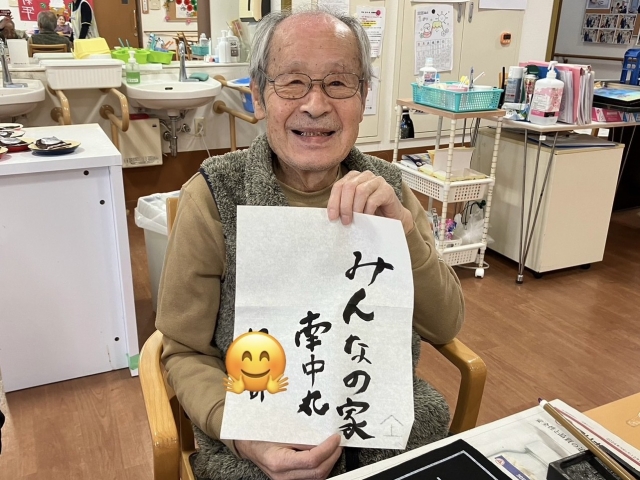 みんなの家
南中丸